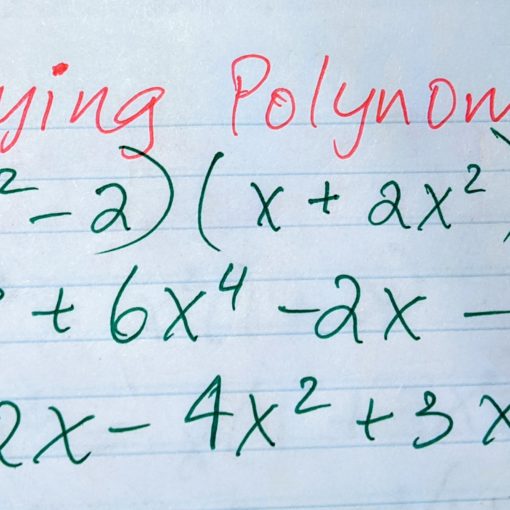 ying Polynom
² - 2) (x + 2x²)
+ 6x⁴ - 2x -
2x - 4x² + 3x